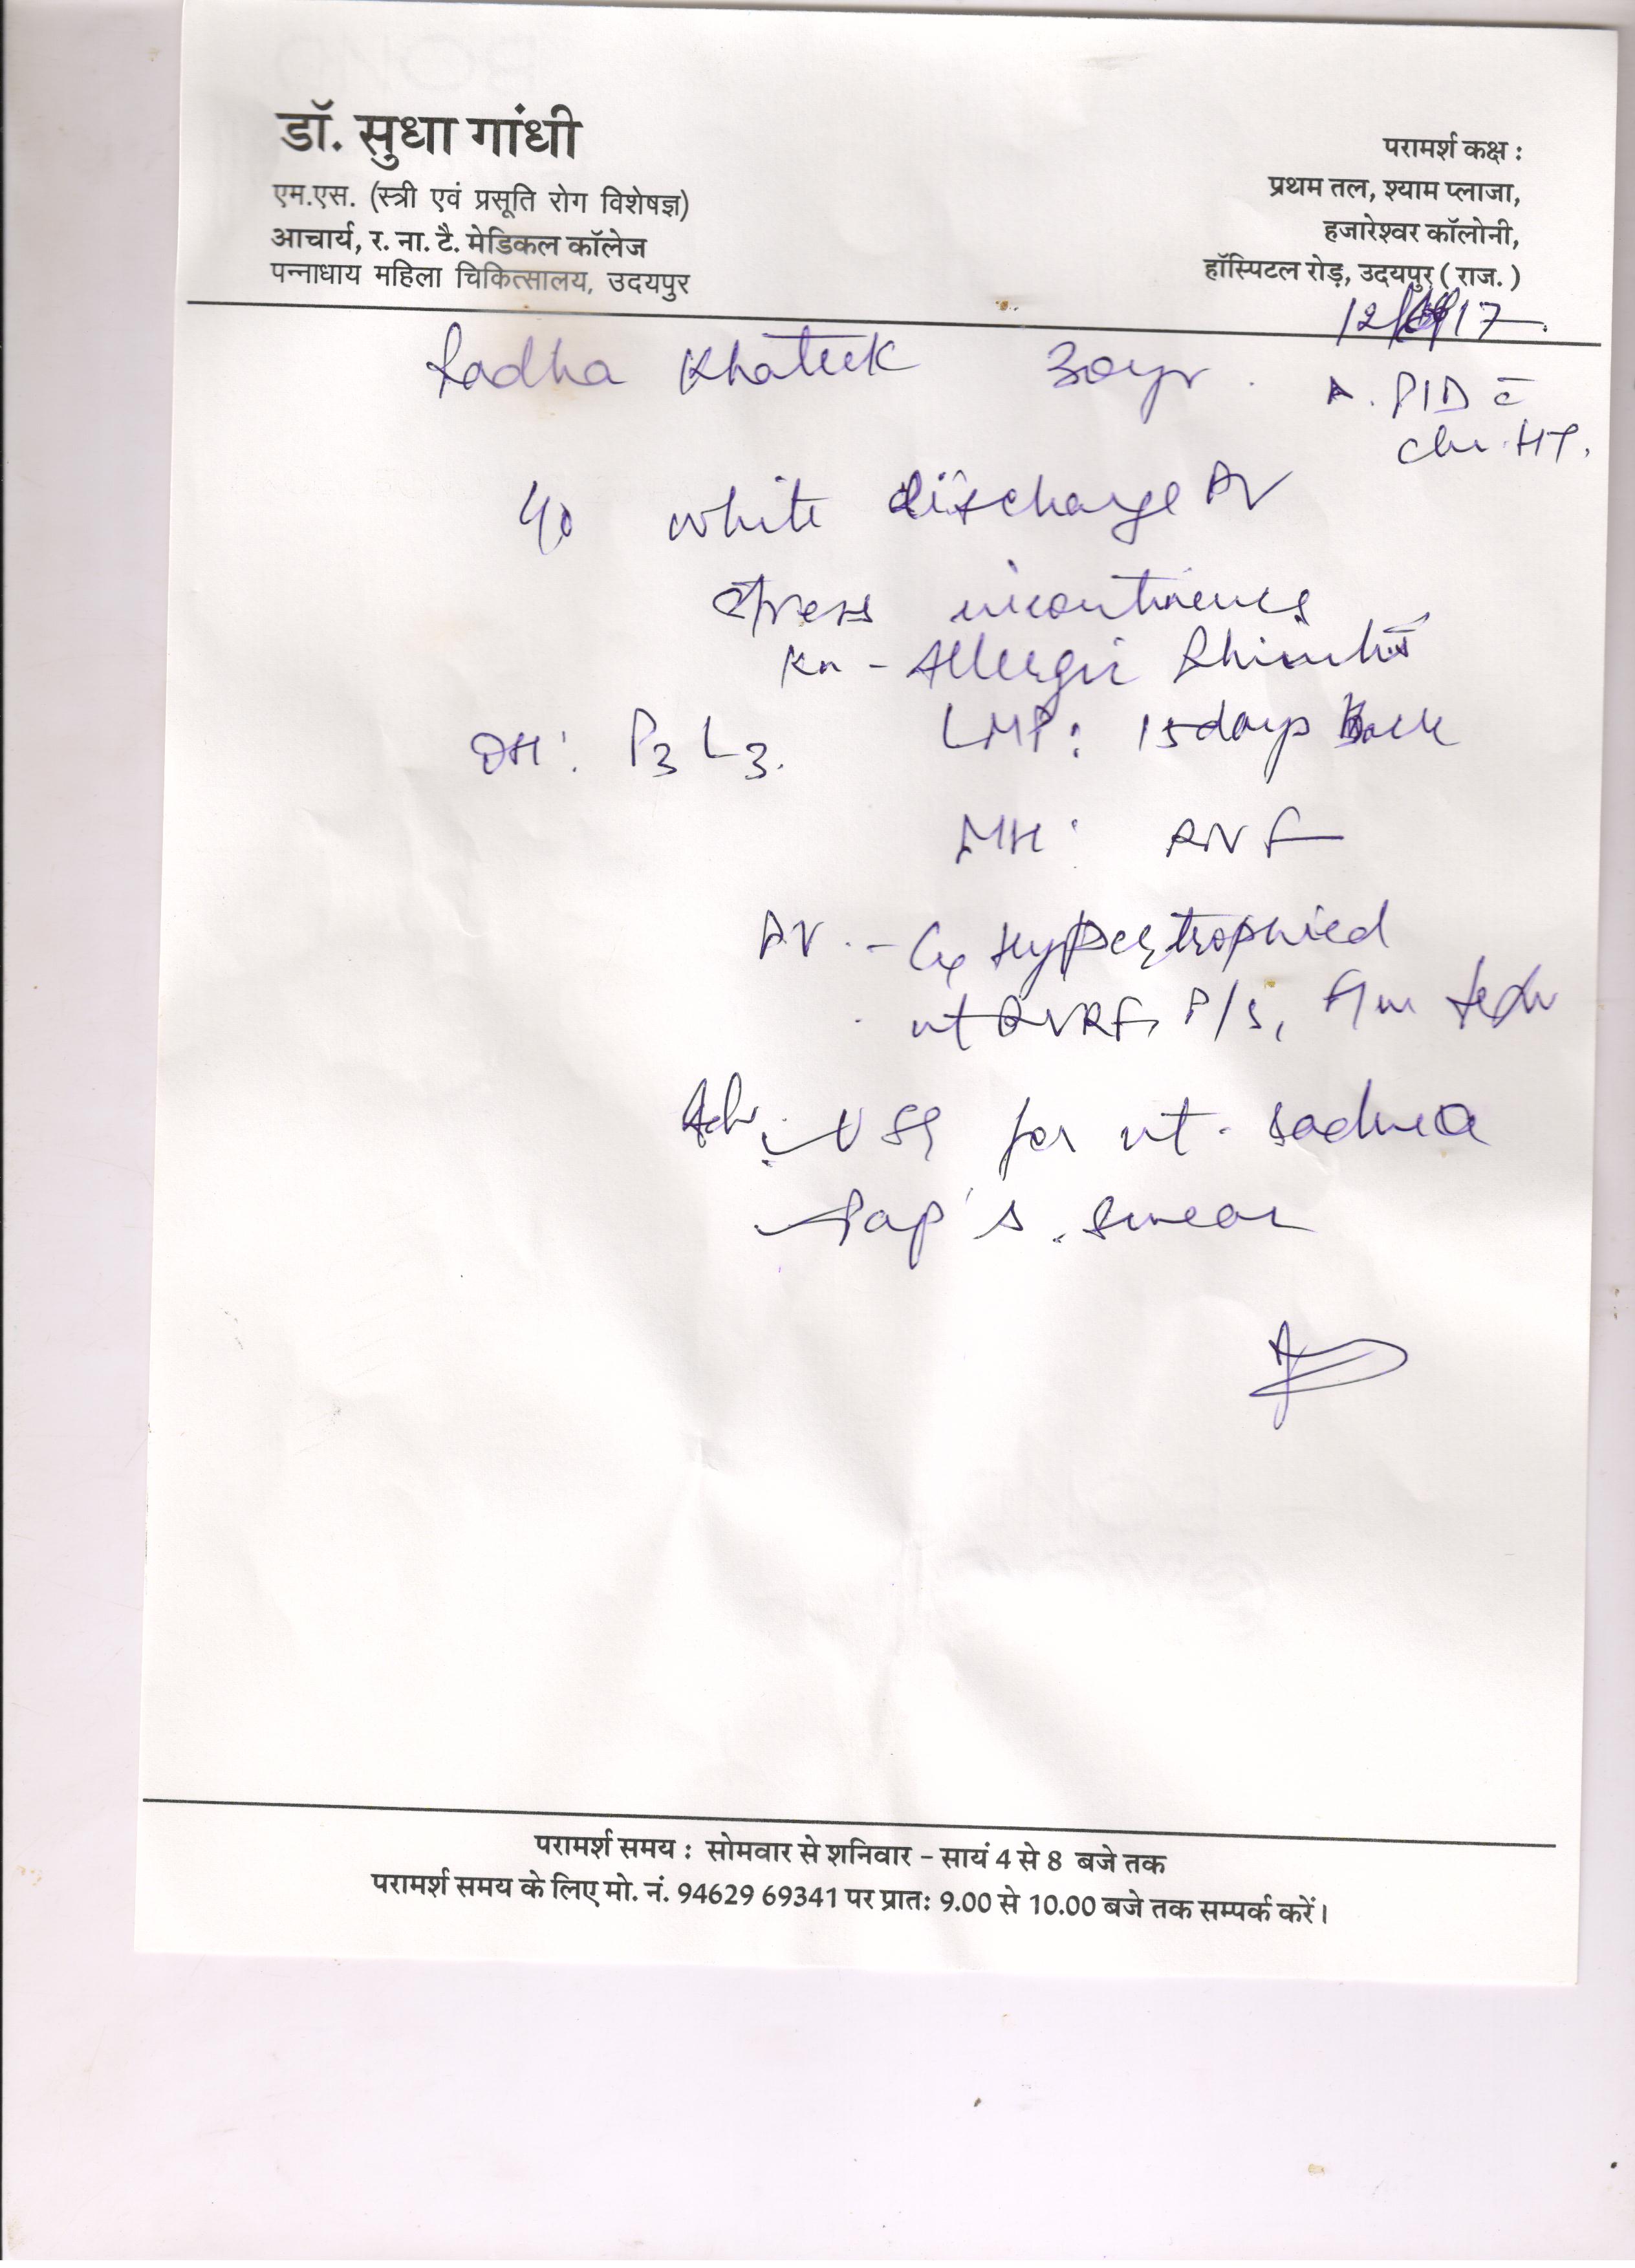 डॉ. सुधा गांधी
एम.एस. (स्त्री एवं प्रसूति रोग विशेषज्ञ)
आचार्य, र. ना. टै. मेडिकल कॉलेज
पन्नाधाय महिला चिकित्सालय, उदयपुर
परामर्श कक्ष :
प्रथम तल, श्याम प्लाजा,
हजारेश्वर कॉलोनी,
हॉस्पिटल रोड़, उदयपुर ( राज. )
Radha Khateek 30yr.
PID c̄
white discharge PV
stress incontinence
Allergic Rhinitis
OH: P3 L3. LMP: 15 days back
MH:
PV. - Cx Hypertrophied
ut AVRF, P/S,
Adv. USG for ut. & adnexa
Pap's smear
परामर्श समय : सोमवार से शनिवार – सायं 4 से 8 बजे तक
परामर्श समय के लिए मो. नं. 94629 69341 पर प्रातः 9.00 से 10.00 बजे तक सम्पर्क करें।